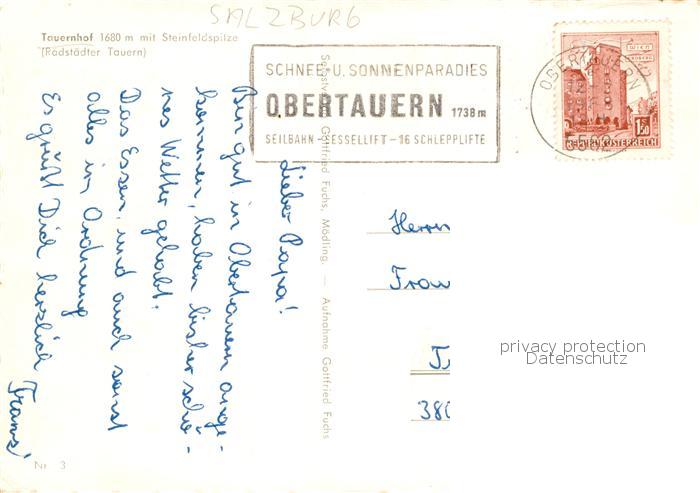 SALZBURG
Tauernhof 1680 m mit Steinfeldspitze
(Radstädter Tauern)
SCHNEE- U. SONNENPARADIES
OBERTAUERN 1738 m
SEILBAHN - SESSELLIFT - 16 SCHLEPPLIFTE
OBERTAUERN
5562
WIEN
1.50
REPUBLIK ÖSTERREICH
Lieber Papa!
Bin gut in Obertauern ange-
kommen, haben bisher schö-
nes Wetter gehabt.
Das Essen und auch sonst
alles in Ordnung
Es grüßt Dich herzlich
Franz!
Selbstverlag Gottfried Fuchs, Mödling. — Aufnahme Gottfried Fuchs
Herrn
Fran
380
privacy protection
Datenschutz
Nr. 3